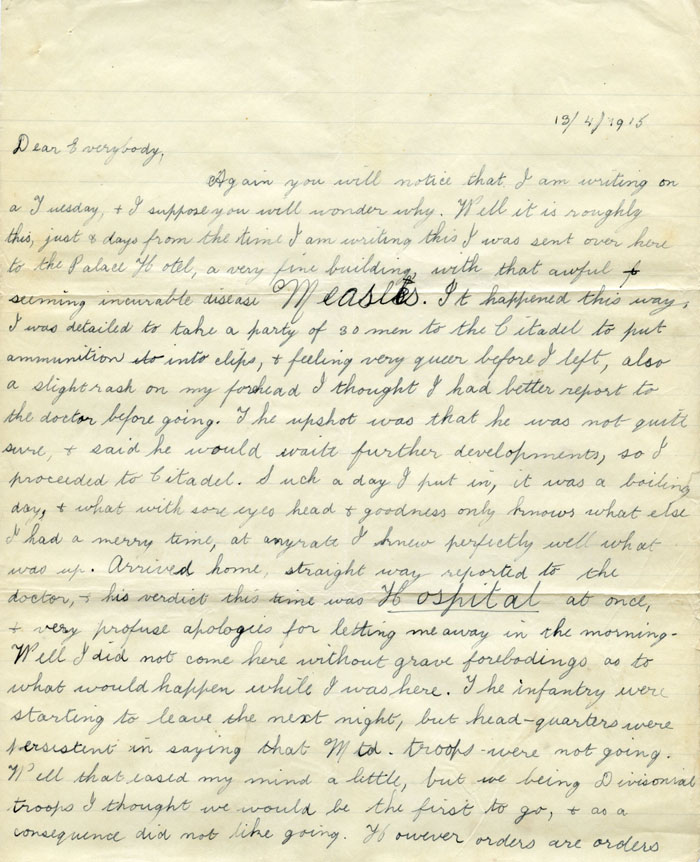 13/4/1915
Dear Everybody,
Again you will notice that I am writing on
a Tuesday, + I suppose you will wonder why. Well it is roughly
this, just 8 days from the time I am writing this I was sent over here
to the Palace Hotel, a very fine building, with that awful +
seeming incurable disease Measles. It happened this way,
I was detailed to take a party of 30 men to the Citadel to put
ammunition into clips, + feeling very queer before I left, also
a slight rash on my forhead I thought I had better report to
the doctor before going. The upshot was that he was not quite
sure, + said he would waite further developments, so I
proceeded to Citadel. Such a day I put in, it was a boiling
day, + what with sore eyes head + goodness only knows what else
I had a merry time, at anyrate I knew perfectly well what
was up. Arrived home, straight way reported to the
doctor, + his verdict this time was Hospital at once,
+ very profuse apologies for letting me away in the morning-
Well I did not come here without grave forebodings as to
what would happen while I was here. The infantry were
starting to leave the next night, but head-quarters were
persistent in saying that Mtd. troops were not going.
Well that eased my mind a little, but we being Divisonial
troops I thought we would be the first to go, + as a
consequence did not like going. However orders are orders